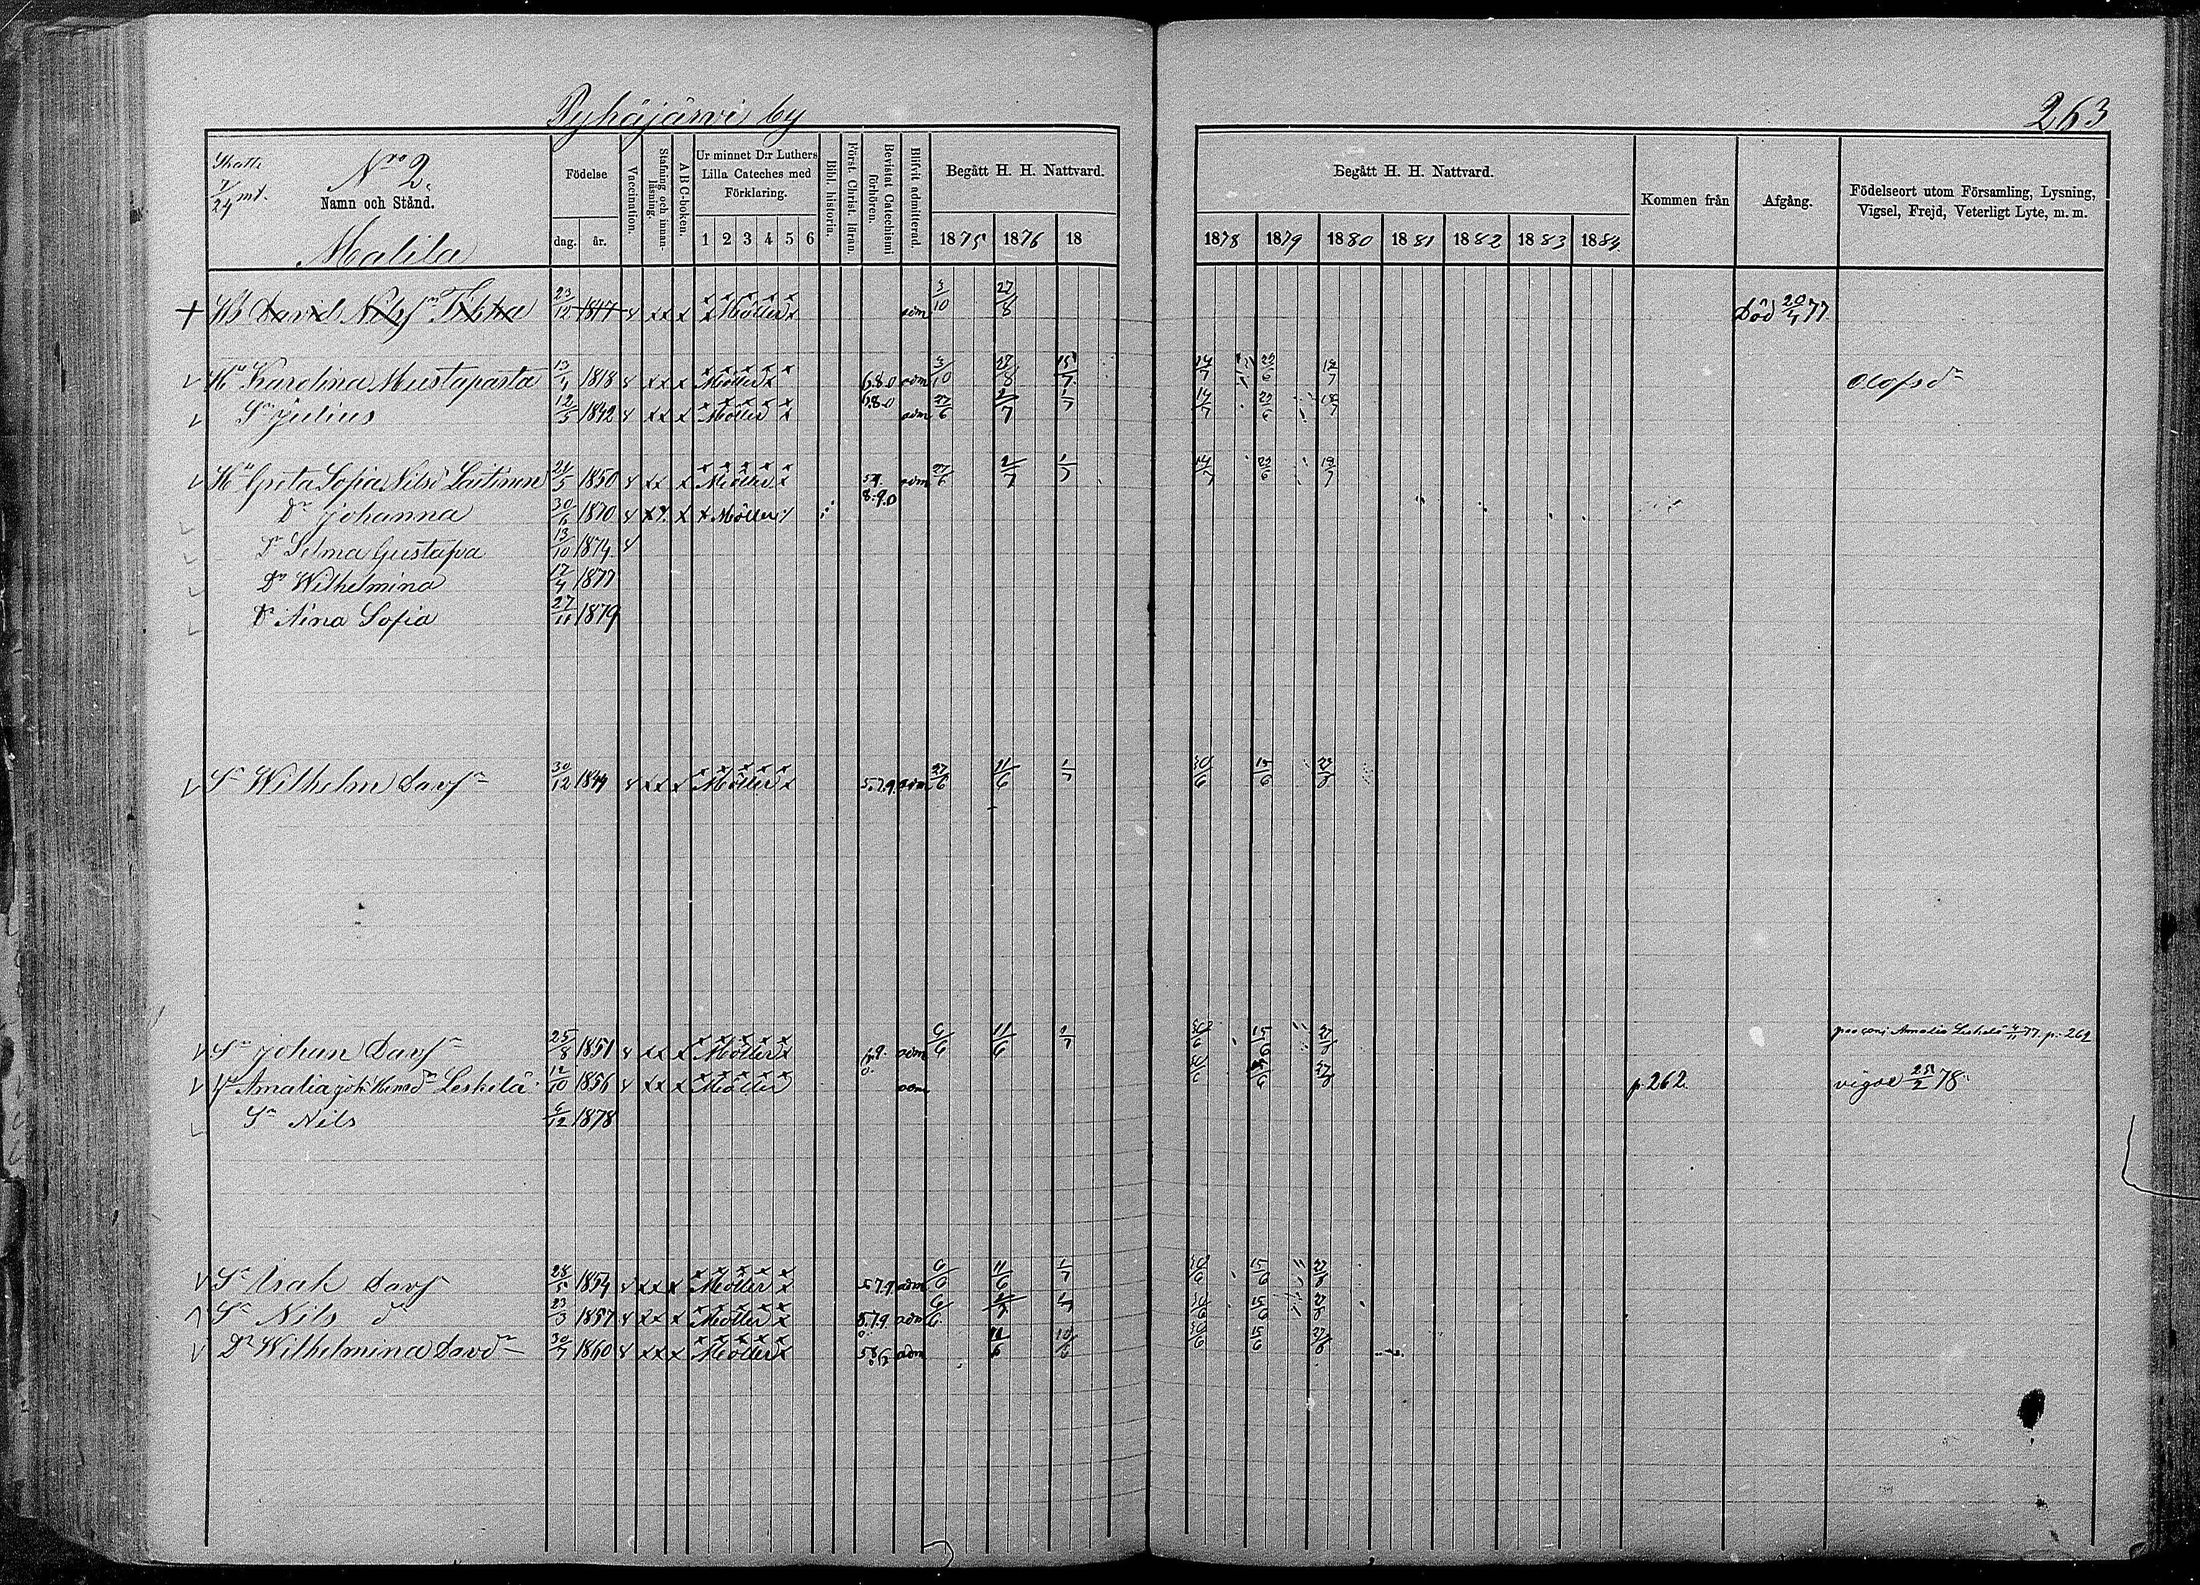 Pyhäjärvi by
263
Skatte
Nro 2.
1/24 mt.
Namn och Stånd.
Malila
Födelse
dag. år.
Vaccination.
Stafning och innanläsning.
ABC-boken.
Ur minnet D:r Luthers
Lilla Cateches med
Förklaring.
1 2 3 4 5 6
Bibl. historia.
Först. Christ. läran.
Bevistat Catechismi förhören.
Blifvit admitterad.
Begått H. H. Nattvard.
1875 1876 18
Begått H. H. Nattvard.
1878 1879 1880 1881 1882 1883 1884
Kommen från
Afgång.
Födelseort utom Församling, Lysning,
Vigsel, Frejd, Veterligt Lyte, m. m.
David Nilss 23/12 1847 x x x x Möller adm 3/10 27/8 Död 20/4 77
Karolina Mustaparta 13/4 1818 x x x Möller 6.8.0 adm 3/10 27/8 15/7 14/7 22/6 Olofsdr
Sn Julius 12/5 1842 x x x Möller 6.8.0 adm 27/6 2/7 1/7 14/7 22/6
Greta Sofia Nilsd Laitinen 24/5 1850 x x x Möller adm 27/6 2/7 1/7 14/7 22/6
8.9.0
Dr Johanna 30/6 1870 Möller
Dr Selma Gustafva 13/10 1874
Dr Wilhelmina 17/4 1877
Dr Aina Sofia 27/11 1879
Sn Wilhelm Davsn 30/12 1844 x x x Möller 5.7.9. adm 27/6 11/6 1/7 30/6 15/6
Sn Johan Davsn 25/8 1851 x x x Möller adm 6/6 11/6 1/7 30/6 15/6 27/8 Amalia Leskelä 77. p. 262
Amalia Joh. Leskelä 12/10 1856 x x x Möller adm p. 262. vigde 25/2 78
Sn Nils 6/12 1878
Sn Isak Davs 28/5 1854 x x x Möller 5.7.9. adm 6/6 11/6 1/7 30/6 15/6 27/8
Sn Nils d 23/3 1857 x x x Möller 5.7.9. adm 6/6 30/6 15/6 27/8
Dr Wilhelmina Davdr 30/7 1860 x x x Möller adm 11/6 10/6 30/6 15/6 27/8